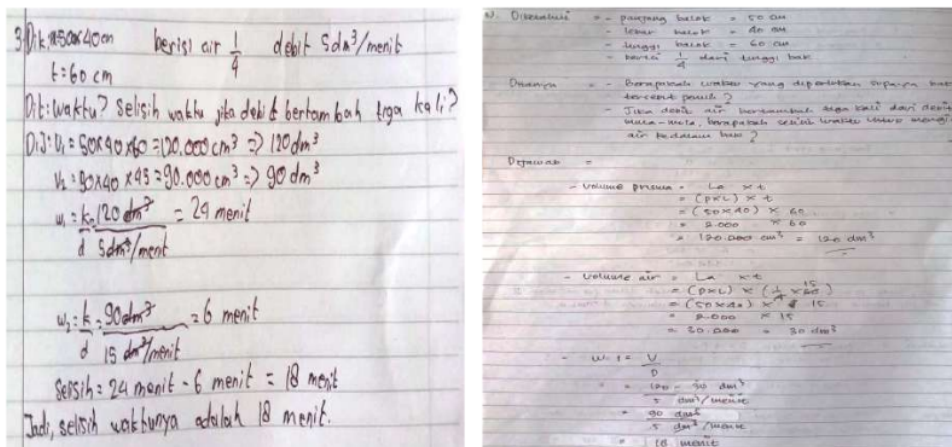 3. Dik: 50x40cm berisi air 1/4 debit 5dm³/menit
t=60 cm
Dit: Waktu? Selisih waktu jika debit bertambah tiga kali?
DiJ: V₁ = 50x40x60 = 120.000 cm³ => 120 dm³
V₂ = 50x40 x45 = 90.000 cm³ => 90 dm³
w₁ = k/d = 120 dm³ / 5dm³/menit = 24 menit
w₂ = k/d = 90dm³ / 15 dm³/menit = 6 menit
Selisih = 24 menit - 6 menit = 18 menit
Jadi, selisih waktunya adalah 18 menit.
Diketahui = - panjang balok = 50 cm
- lebar balok = 40 cm
- tinggi balok = 60 cm
- berisi 1/4 dari tinggi bak
Ditanya = - Berapakah waktu yang diperlukan supaya bak
tersebut penuh?
- Jika debit air bertambah tiga kali dari debit
mula-mula, berapakah selisih waktu untuk mengisi
air kedalam bak?
Dijawab =
- Volume prisma = La x t
= (pxL) x t
= (50x40) x 60
= 2.000 x 60
= 120.000 cm³ = 120 dm³
- Volume air = La x t
= (pxL) x (1/4 x 60) 15
= (50x40) x 15
= 2.000 x 15
= 30.000 = 30 dm³
- W.1 = V/D
= 120 - 30 dm³ / 5 dm³/menit
= 90 dm³ / 5 dm³/menit
= 18 menit